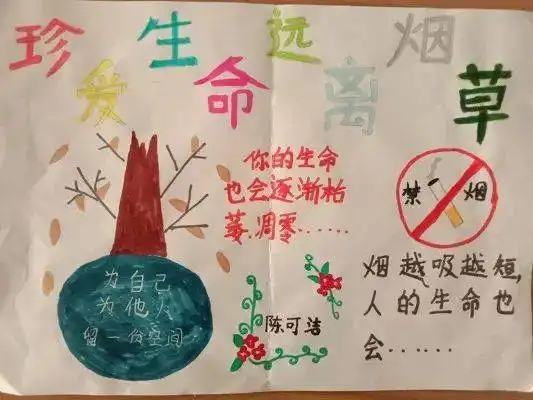 珍爱生命远离烟草
你的生命
也会逐渐枯
萎.凋零……
禁烟
烟越吸越短,
人的生命也
会……
为自己
为他人
留一份空间
陈可洁